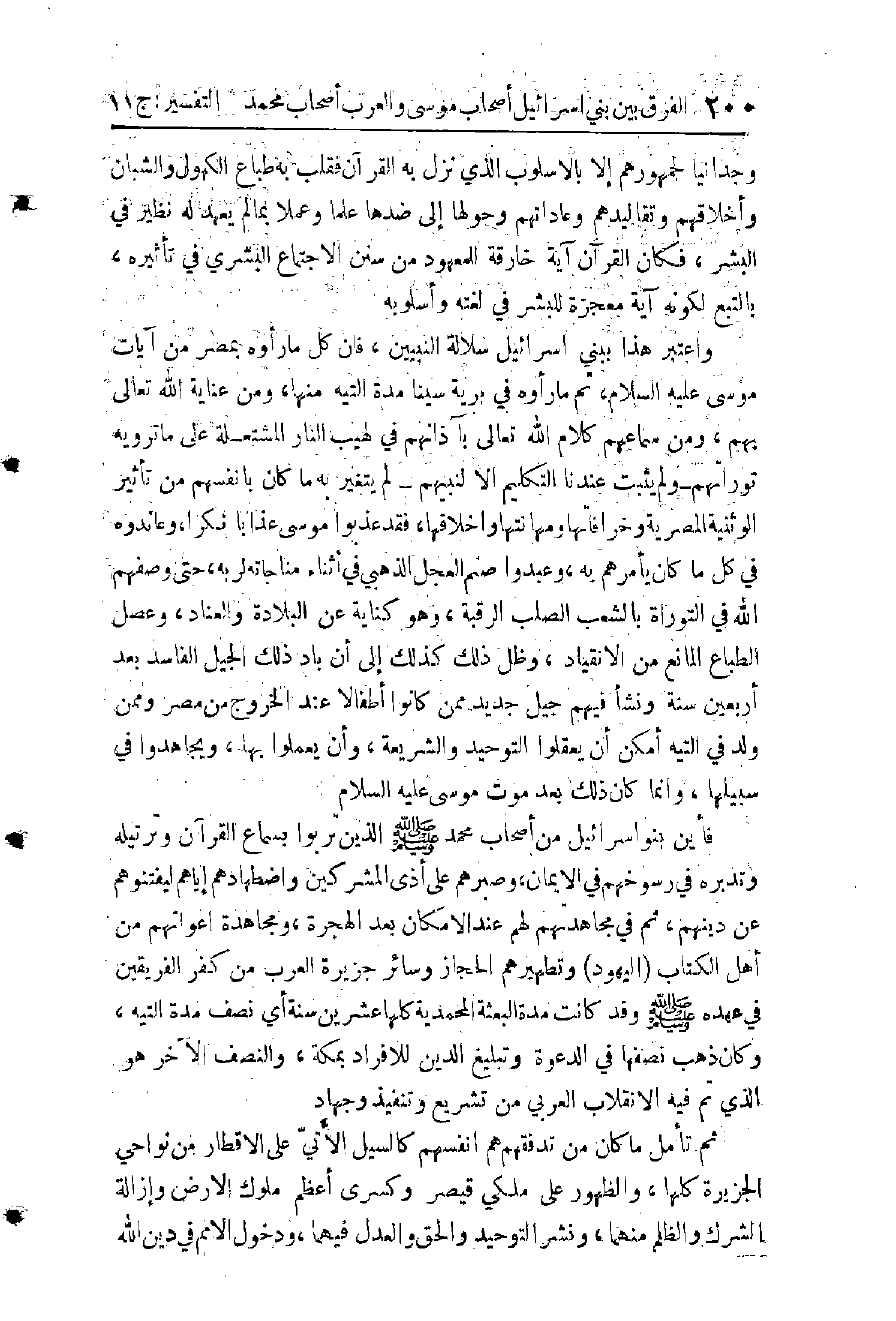 ٢٠٠ الفرق بين بني اسرائيل أصحاب موسى والعرب أصحاب محمد التفسير : ج ١١
وجدانيا لجمهورهم إلا بالاسلوب الذي نزل به القرآن فقلب به طباع الكهول والشبان
وأخلاقهم وتقاليدهم وعاداتهم وحولها إلى ضدها علما وعملا بما لم يعهد له نظير في
البشر ، فكان القرآن آية خارقة للمعهود من سنن الاجتماع البشري في تأثيره ،
بالتبع لكونه آية معجزة للبشر في لغته وأسلوبه
واعتبر هذا ببني اسرائيل سلالة النبيين ، فان كل ما رأوه بمصر من آيات
موسى عليه السلام، ثم ما رأوه في برية سينا مدة التيه منها، ومن عناية الله تعالى
بهم ، ومن سماعهم كلام الله تعالى بآذانهم في لهيب النار المشتعلة على ما ترويه
توراتهم ــ ولم يثبت عندنا التكليم الا لنبيهم ــ لم يتغير به ما كان بانفسهم من تأثير
الوثنية المصرية وخرافاتها ومهانتها واخلاقها، فقد عذبوا موسى عذابا نكرا، وعاندوه
في كل ما كان يأمرهم به ، وعبدوا صنم العجل الذهبي في أثناء مناجاته لربه، حتى وصفهم
الله في التوراة بالشعب الصلب الرقبة ، وهو كناية عن البلادة والعناد ، وعصل
الطباع المانع من الانقياد ، وظل ذلك كذلك إلى أن باد ذلك الجيل الفاسد بعد
أربعين سنة ونشأ فيهم جيل جديد ممن كانوا أطفالا عند الخروج من مصر وممن
ولد في التيه أمكن أن يعقلوا التوحيد والشريعة ، وأن يعملوا بها ، ويجاهدوا في
سبيلها ، وانما كان ذلك بعد موت موسى عليه السلام
فأين بنو اسرائيل من أصحاب محمد ﷺ الذين تربوا بسماع القرآن وترتيله
وتدبره في رسوخهم في الايمان، وصبرهم على أذى المشركين واضطهادهم إياهم ليفتنوهم
عن دينهم ، ثم في مجاهدتهم لهم عند الامكان بعد الهجرة ، ومجاهدة اعوانهم من
أهل الكتاب (اليهود) وتطهيرهم الحجاز وسائر جزيرة العرب من كفر الفريقين
في عهده ﷺ وقد كانت مدة البعثة المحمدية كلها عشرين سنة أي نصف مدة التيه ،
وكان ذهب نصفها في الدعوة وتبليغ الدين للافراد بمكة ، والنصف الآخر هو
الذي تم فيه الانقلاب العربي من تشريع وتنفيذ وجهاد
ثم تأمل ما كان من تدفقهم هم انفسهم كالسيل الأتيّ على الاقطار من نواحي
الجزيرة كلها ، والظهور على ملكي قيصر وكسرى أعظم ملوك الارض وإزالة
الشرك والظلم منهما ، ونشر التوحيد والحق والعدل فيهما ، ودخول الامم في دين الله